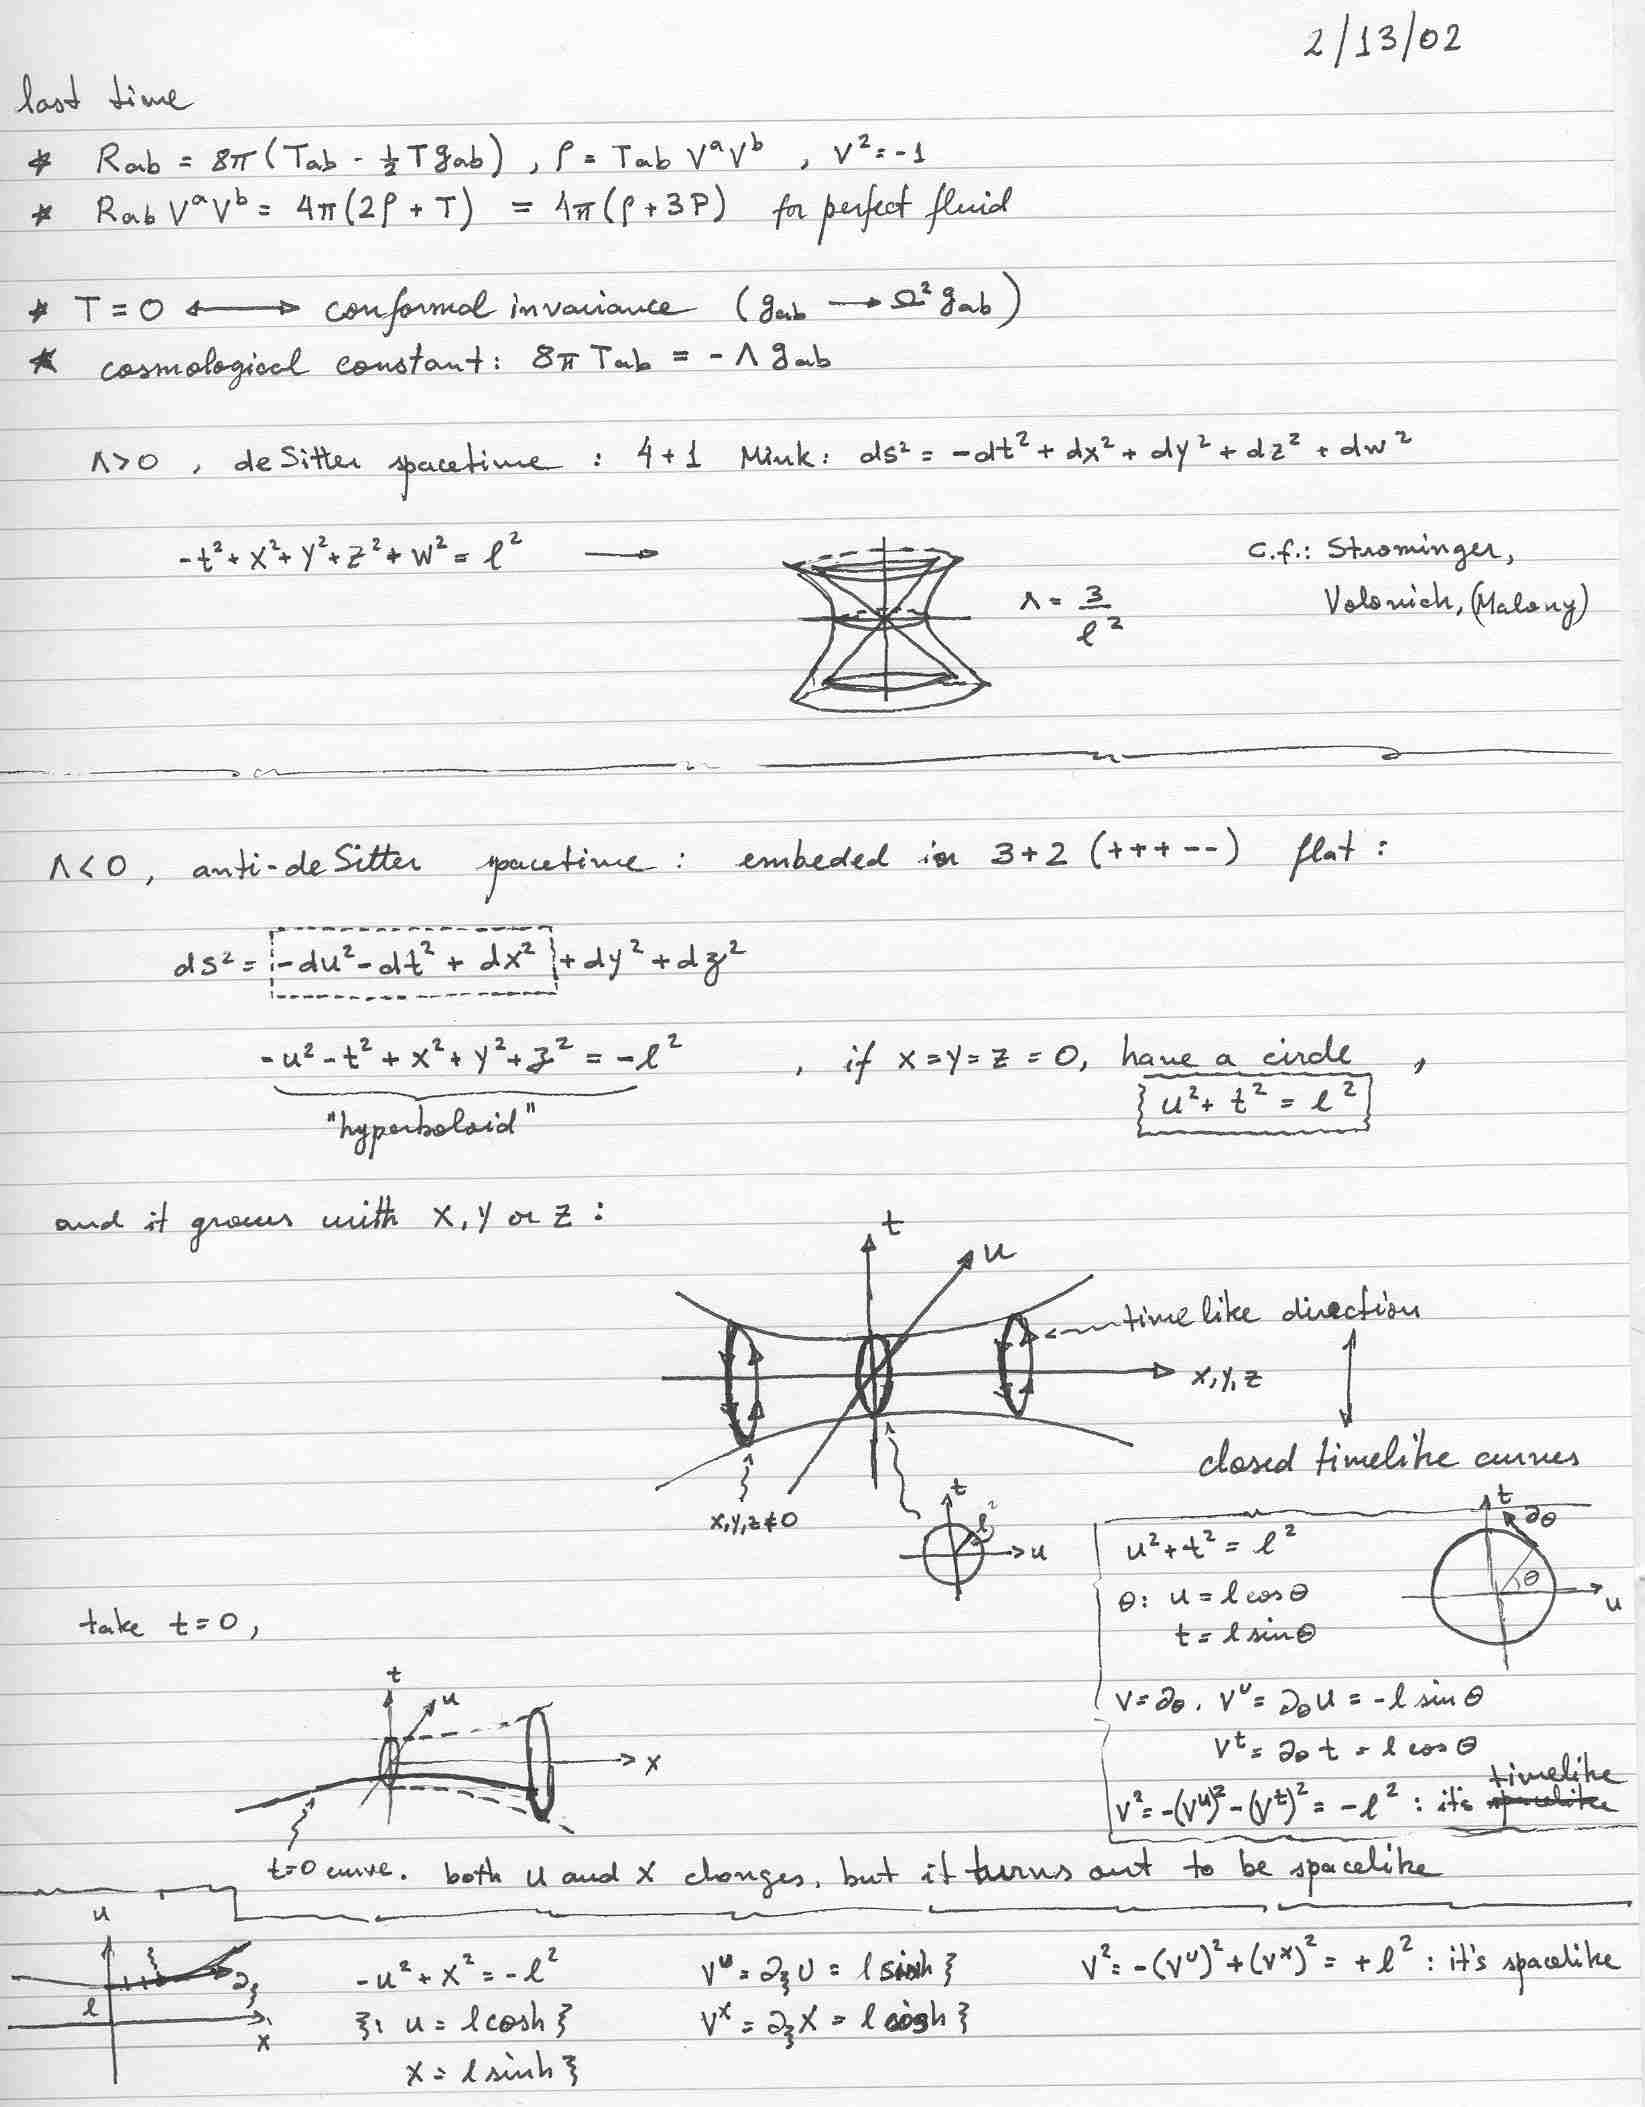 2/13/02
last time
* Rab = 8π(Tab - ½Tgab) , ρ = Tab Vᵃ Vᵇ , V² = -1
* Rab VᵃVᵇ = 4π(2ρ + T) = 4π(ρ + 3P) for perfect fluid
* T = 0 ⟷ conformal invariance (gab → Ω² gab)
* cosmological constant: 8π Tab = - Λ gab
Λ>0 , de Sitter spacetime : 4+1 Mink: ds² = -dt² + dx² + dy² + dz² + dw²
-t² + x² + y² + z² + w² = l² →
Λ = 3/l²
c.f.: Strominger,
Volovich, (Malony)
Λ<0, anti-de Sitter spacetime : embeded in 3+2 (+++--) flat :
ds² = -du² - dt² + dx² + dy² + dz²
-u² - t² + x² + y² + z² = -l² , if x=y=z=0, have a circle ,
u² + t² = l²
"hyperboloid"
and it grows with x, y or z :
t
u
timelike direction
x,y,z
closed timelike curves
x,y,z≠0
t
l²
u
u² + t² = l²
θ: u = l cosθ
t = l sinθ
t
∂θ
θ
u
V = ∂θ . Vᵘ = ∂θ u = -l sin θ
Vᵗ = ∂θ t = l cos θ
timelike
V² = -(Vᵘ)² - (Vᵗ)² = -l² : it's spacelike
take t=0,
t
u
x
t=0 curve. both u and x changes, but it turns out to be spacelike
u
ξ
∂ξ
l
x
-u² + x² = -l²
ξ: u = l cosh ξ
x = l sinh ξ
Vᵘ = ∂ξ u = l sinh ξ
Vˣ = ∂ξ x = l cosh ξ
V² = -(Vᵘ)² + (Vˣ)² = +l² : it's spacelike